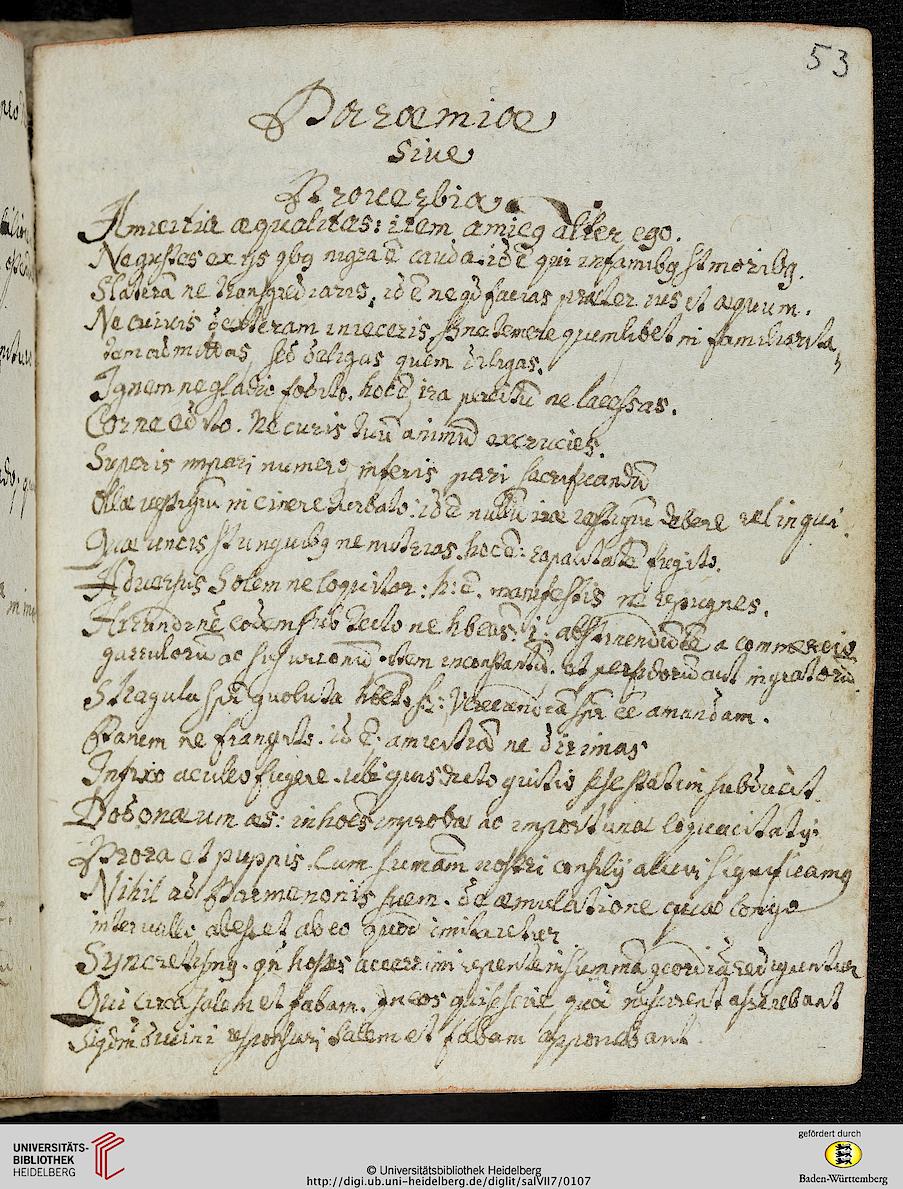 53
Paroemiae
sive
Proverbia.
Amicitia aequalitas: item amicq alter ego.
Ne gustes ex ijs qbq nigra ē cauda. id ē qui infamibq st moribq.
Staterā ne transgrediaris, id ē ne qd facias praeter ius et aequum.
Ne cuivis dexteram inieceris, ne temere quemlibet in familiarita
tem admittas, sed deligas quem diligas.
Ignem ne gladio fodito. hoc ē, ira percitū ne laesseas.
Cor ne edito. Ne curis tuū animū excrucies.
Superis impari numero, inferis pari sacrificandū
Ollae vestigiū in cinere turbato: id ē nullū irae vestigiū debere relinqui.
Quae uncis st unguibq ne nutrias. hoc ē: rapacitatē fugito.
Adversus Solem ne loquitor: h: ē. manifestis ne repugnes.
Hirundinē eodem sub tecto ne hbeas: i: abstinendū ēē a commercio
garrulorū ac susurronū item inconstantiū et perfidorū aut ingratorū.
Stragula spr convoluta hbeto: Verecundiā spr ēē amandam.
Panem ne frangito. id ē. amicitiā ne dirimas
Infixo aculeo fugere. ubi quis dicto quitio sese statim subducit.
Dodonaeum aes: in hoēs improbae ac importunae loquacitatis.
Prora et puppis. Cum sumam nostri consilij alicui significamq
Nihil ad Parmenonis suem. de aemulatione quae longo
intervallo abest ab eo quod imitaretur
Syncretismq. qn hostes acerrimi repente in summā gcordiā rediguntur
Qui circa salem et fabam. In eos qui se scire, quae nescirent asserebant
Siqdm divini responsuri Salem et fabam apponebant
UNIVERSITÄTS-
BIBLIOTHEK
HEIDELBERG
© Universitätsbibliothek Heidelberg
http://digi.ub.uni-heidelberg.de/diglit/salVII7/0107
gefördert durch
Baden-Württemberg